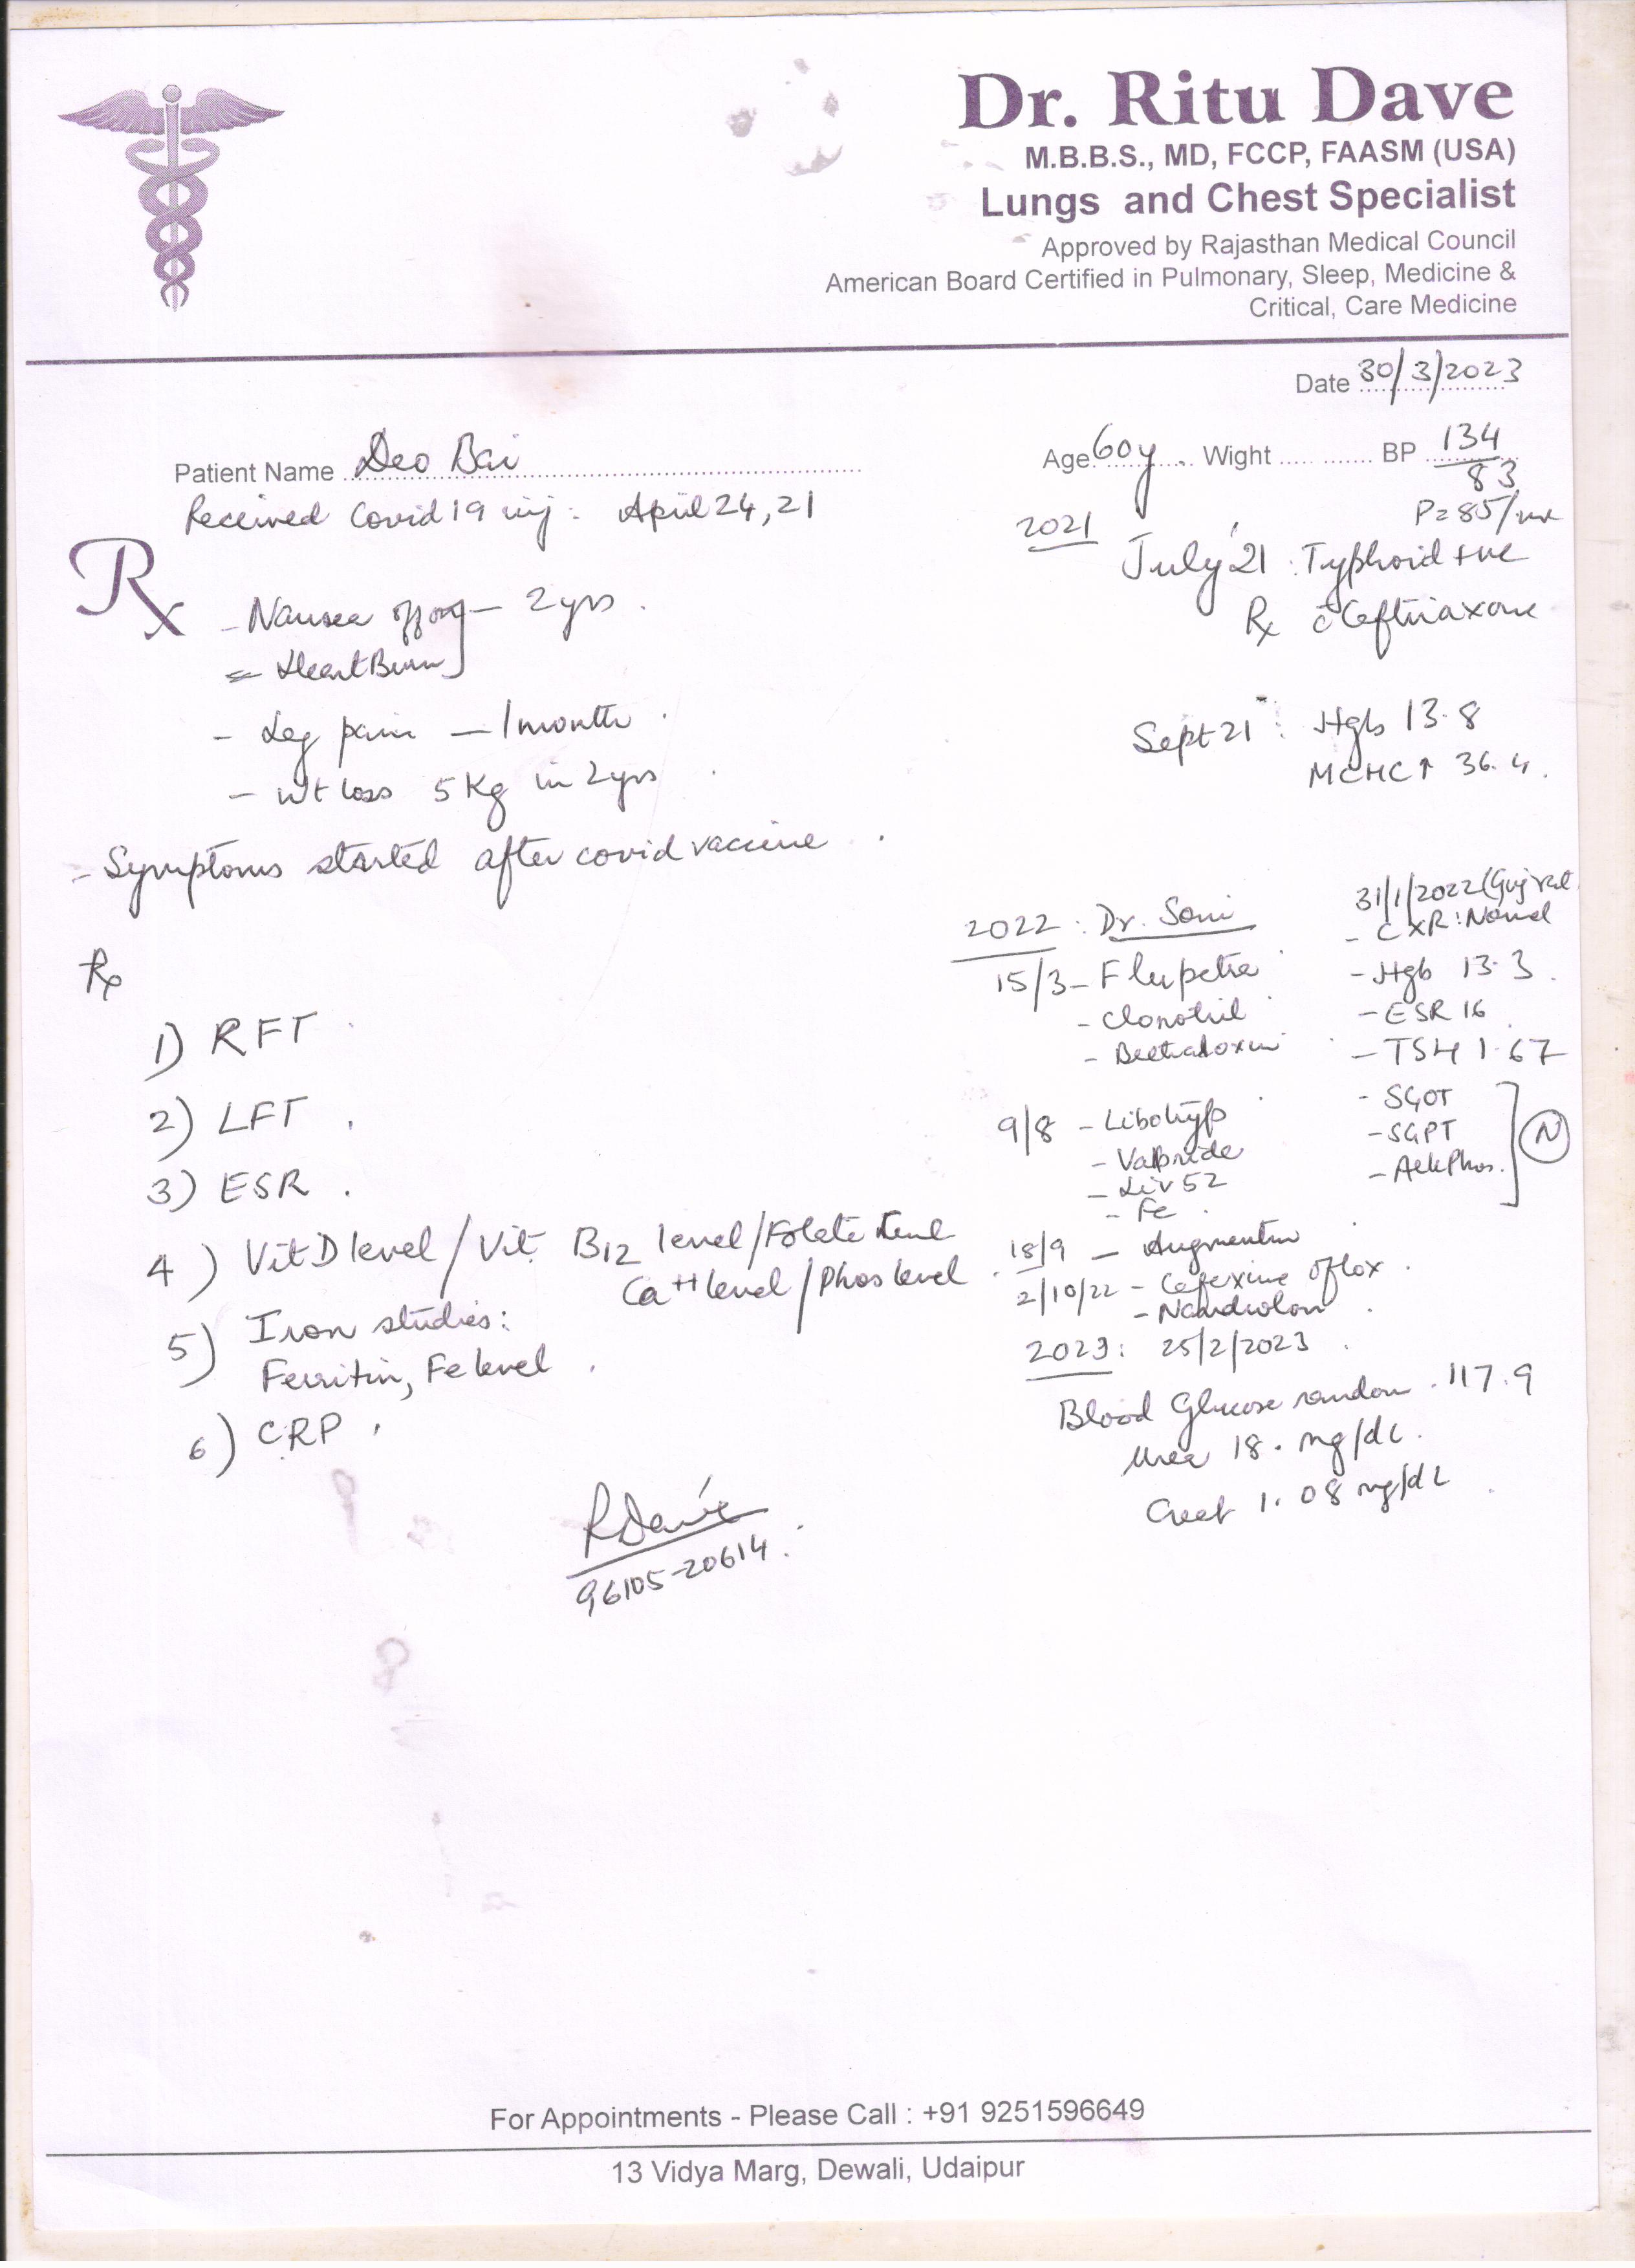 Dr. Ritu Dave
M.B.B.S., MD, FCCP, FAASM (USA)
Lungs and Chest Specialist
Approved by Rajasthan Medical Council
American Board Certified in Pulmonary, Sleep, Medicine &
Critical, Care Medicine
Date 30/3/2023
Patient Name Deo Bai
Age 60y Wight BP 134/83
P=85/
Received Covid19 inj: April 24, 21
Rx
- Nausea off on - 2yrs
= HeartBurn
- Leg pain - 1month
- Wt loss 5Kg in 2yrs
- Symptoms started after covid vaccine
2021
July'21: Typhoid +ve
Rx c̄ Ceftriaxone
Sept 21: Hgb 13.8
MCHC↑ 36.4
2022: Dr. Soni
15/3 - Flupetra
- Clonotril
- Beetradoxin
9/8 - Libotryp
- Liv 52
- Fe
18/9 - Augmentin
2/10/22 - Cefexime Oflox
- Nandrolon
31/1/2022 (Gujrat
- CXR: Normal
- Hgb 13.3
- ESR 16
- TSH 1.67
- SGOT
- SGPT
- AlkPhos. (N)
2023: 25/2/2023
Blood Glucose random 117.9
Urea 18. mg/dL
Creat 1.08 mg/dL
Rx
1) RFT
2) LFT
3) ESR
4) Vit D level / Vit B12 level / Folate level
Ca++ level / Phos level
5) Iron studies:
Ferritin, Fe level
6) CRP
RDave
96105-20614
For Appointments - Please Call : +91 9251596649
13 Vidya Marg, Dewali, Udaipur